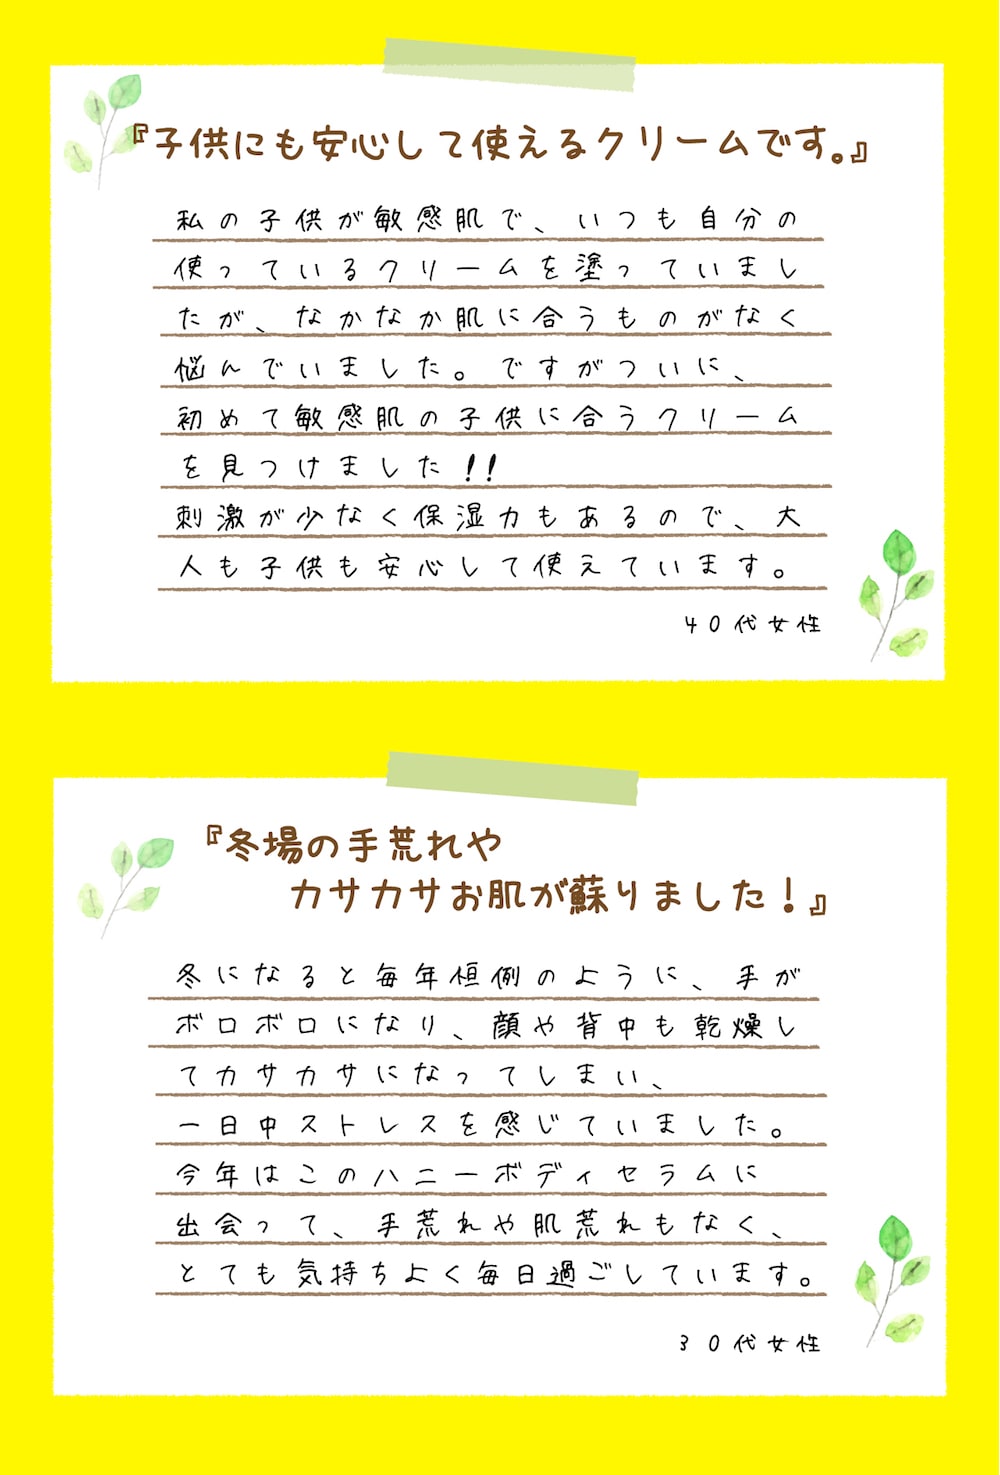 『子供にも安心して使えるクリームです。』
私の子供が敏感肌で、いつも自分の
使っているクリームを塗っていまし
たが、なかなか肌に合うものがなく
悩んでいました。ですがついに、
初めて敏感肌の子供に合うクリーム
を見つけました!!
刺激が少なく保湿力もあるので、大
人も子供も安心して使えています。
40代女性
『冬場の手荒れや
カサカサお肌が蘇りました！』
冬になると毎年恒例のように、手が
ボロボロになり、顔や背中も乾燥し
てカサカサになってしまい、
一日中ストレスを感じていました。
今年はこのハニーボディセラムに
出会って、手荒れや肌荒れもなく、
とても気持ちよく毎日過ごしています。
30代女性